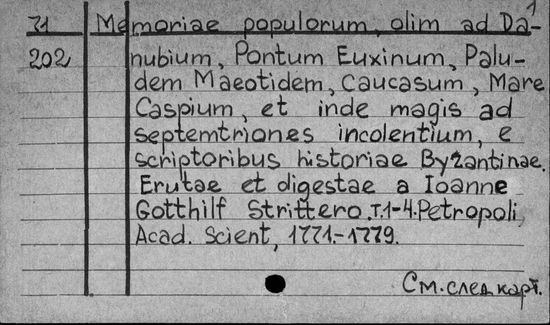 71 Memoriae populorum, olim ad Da-
1
202 nubium, Pontum Euxinum, Palu-
dem Maeotidem, Caucasum, Mare
Caspium, et inde magis ad
septemtriones incolentium, e
scriptoribus historiae Byzantinae.
Erutae et digestae a Ioanne
Gotthilf Strittero. T.1-4. Petropoli,
Acad. Scient, 1771.-1779.
См. след карт.